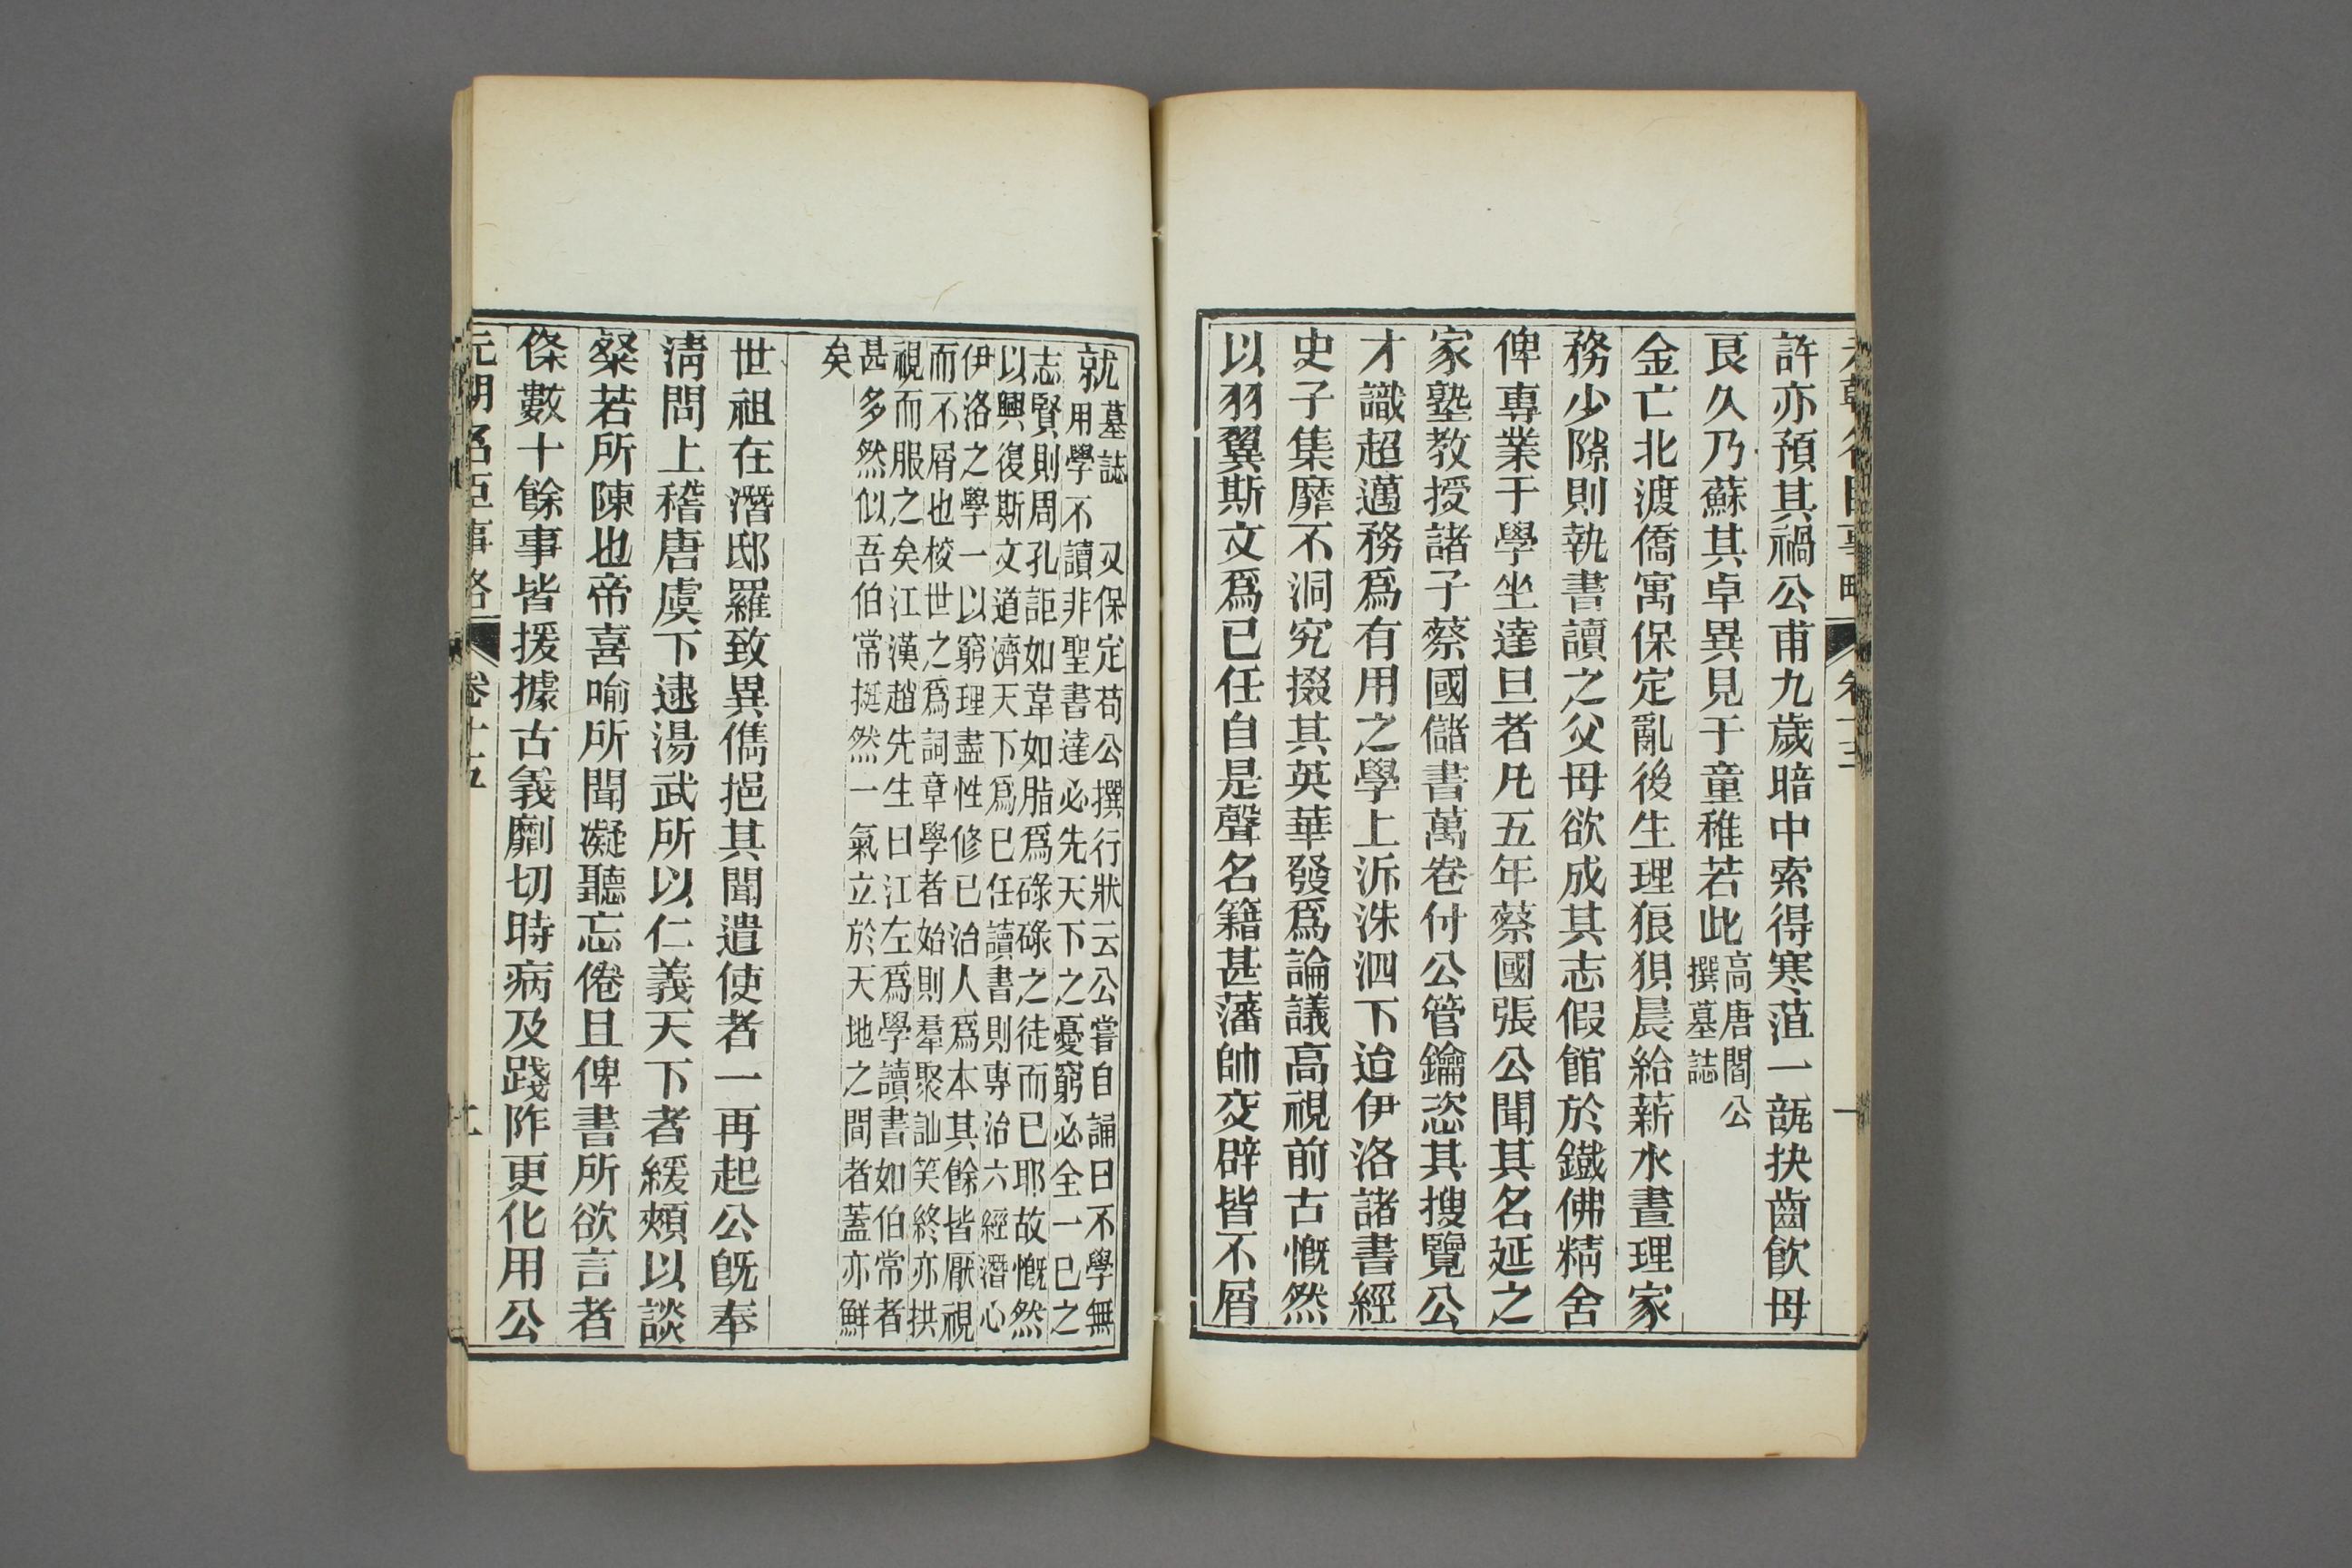 許亦預其禍公甫九歲暗中索得寒菹一瓿抉齒飮母
良久乃蘇其卓異見于童稚若此高唐閻公
撰墓誌
金亡北渡僑寓保定亂後生理狼狽晨給薪水晝理家
務少隙則執書讀之父母欲成其志假館於鐵佛精舍
俾專業于學坐達旦者凡五年蔡國張公聞其名延之
家塾敎授諸子蔡國儲書萬卷付公管鑰恣其搜覽公
才識超邁務爲有用之學上泝洙泗下迨伊洛諸書經
史子集靡不洞究掇其英華發爲論議高視前古慨然
以羽翼斯文爲已任自是聲名籍甚藩帥交辟皆不屑
就墓誌 又保定苟公撰行狀云公嘗自誦曰不學無
用學不讀非聖書達必先天下之憂窮必全一已之
志賢則周孔詎如韋如脂爲碌碌之徒而已耶故慨然
以興復斯文道濟天下爲已任讀書則専治六經潛心
伊洛之學一以窮理盡性修已治人爲本其餘皆厭視
而不屑也校世之爲詞章學者始則羣聚訕笑終亦拱
視而服之矣江漢趙先生曰江左爲學讀書如伯常者
甚多然似吾伯常挺然一氣立於天地之間者蓋亦鮮
矣
世祖在潛邸羅致異儁挹其聞遣使者一再起公旣奉
淸問上稽唐虞下逮湯武所以仁義天下者緩頰以談
粲若所陳也帝喜喻所聞凝聽忘倦且俾書所欲言者
條數十餘事皆援據古義劘切時病及踐阼更化用公
元朝名臣事略 卷十五 二